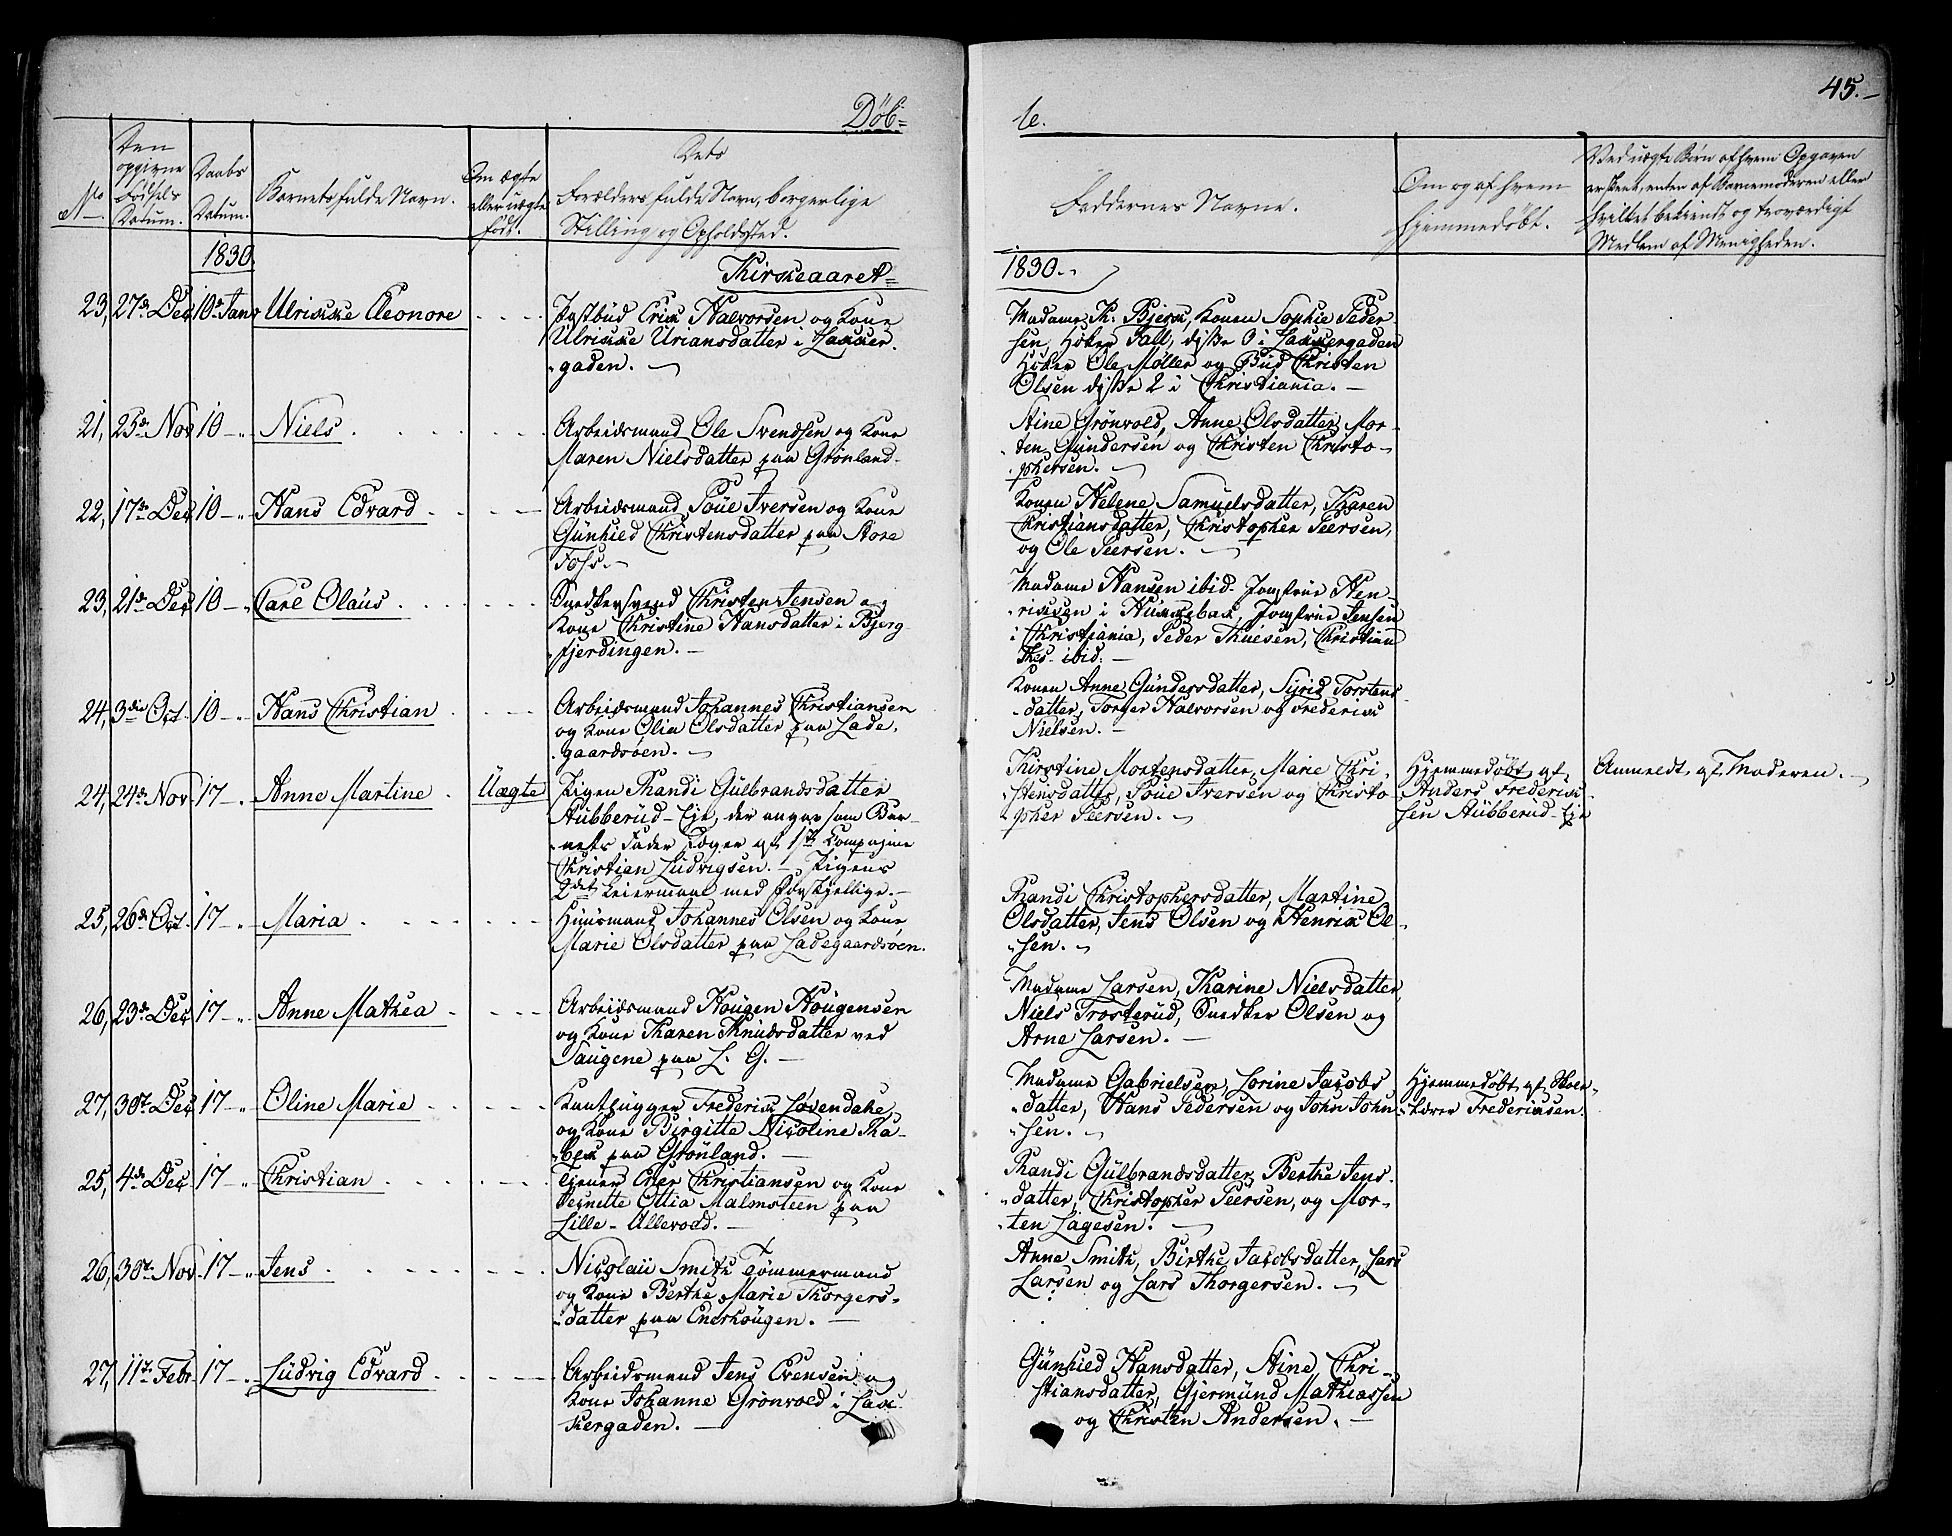 Döb=
te.
45.
No
Den opgivne Fødsels Datum.
Daabs Datum.
Barnets fulde Navn.
Om ægte eller uægte født.
Dets
Forældres fulde Navn, borgerlige
Stilling og Opholdssted.
Faddernes Navne.
Om og af hvem
hjemmedøbt.
Ved uægte Børn af hvem Opgaven
er skeet, enten af Barnemoderen eller
hvilket bekiendt og troværdigt
Medlem af Menigheden.
1830.
Kirkeaaret
1830.
23, 27de Dec 10de Janr Ulrikke Eleonore
Postbud Erik Halvorsen og Kone
Ulrikke Uriansdatter i Lakker-
gaden.
Madame K. Bjerk, Konen Sophie Peder-
sen, Høker Fall, disse 3 i Lakkergaden
Høker Ole Møller og Bud Christen
Olsen disse 2 i Christiania.
21, 25de Nov 10 Niels
Arbeidsmand Ole Svendsen og Kone
Maren Nielsdatter paa Grønland
Stine Grönvold, Anne Olsdatter, Mor-
ten Gundersen og Christen Christo-
phersen.
22, 17de Dec 10 Hans Edvard
Arbeidsmand Poüe Iversen og Kone
Günhild Christensdatter paa Store
Foss.
Konen Helene Samuelsdatter, Karen
Christiansdatter, Christopher Peersen,
og Ole Peersen.
23, 21de Dec 10 Carl Olaüs
Snedkersvend Christen Jensen og
Kone Christine Hansdatter i Bjerg-
fjerdingen.
Madame Hansen ibid. Jomfrue Hen-
riksen i Hukkebak, Jomfrue Jensen
i Christiania, Peder Thuesen, Christian
ibid.
24, 3die Oct. 10 Hans Christian
Arbeidsmand Johannes Christiansen
og Kone Olia Olsdatter paa Lade-
gaardsöen.
Konen Anne Gündersdatter, Sigrid Torstens
datter, Torger Halvorsen og Frederik
Nielsen.
24, 24de Nov. 17 Anne Martine Uægte
Pigen Randi Gülbrandsdatter
Aübberüd-Eje, der angav som Bar-
nets Fader Jæger af 1ste Kompagnie
Christian Ludvigsen. Pigens
2det Leiermaal med forskjellige.
Kirstine Mortensdatter, Marie Chri-
stensdatter, Poüe Iversen og Christo
pher Peersen.
Hjemmedøbt af
Anders Frederik-
sen Aübberüd-Eje
Anmeldt af Moderen.
25, 26de Oct. 17 Maria
Huusmand Johannes Olsen og Kone
Marie Olsdatter paa Ladegaardsöen.
Randi Christophersdatter, Martine
Olsdatter, Jens Olsen og Henrik Ol-
sen.
26, 23de Dec 17 Anne Mathea
Arbeidsmand Haügen Haügensen
og Kone Karen Knüdsdatter ved
Saügene paa L. G.
Madame Larsen, Karine Nielsdatter,
Niels Trosterüd, Snedker Olsen og
Arne Larsen.
27, 30te Dec 17 Oline Marie
Frederik Lövendahl
og Kone Birgitte Nicoline Tha-
paa Grönland.
Madame Gabrielsen, Lorine Jacobs
datter, Hans Pedersen og John John-
sen.
Hjemmedøbt af Skole-
Lærer Frederiksen.
25, 4de Dec 17 Christian
Tjener Christiansen og Kone
Ottia Malmsteen paa
Lille-Ullevold.
Randi Gülbrandsdatter, Berthe Jens-
datter, Christopher Peersen, og Mor-
ten Lagesen.
26, 30te Nov. 17 Jens
Nicolaii Smith Tömmermand
og Kone Berthe Marie Thorgers-
datter paa Enerhaügen.
Anne Smith, Birthe Jacobsdatter, Lars
Larsen og Lars Thorgersen.
27, 11te Febr 17 Lüdvig Edvard
Arbeidsmand Jens Evensen og
Kone Johanne Grönvold i Lak-
kergaden.
Günhild Hansdatter, Stine Chri-
stiansdatter, Gjermünd Mathiassen
og Christen Andersen.